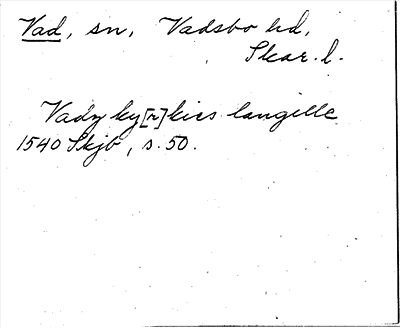 Vad, sn, Vadsbo hd,
Skar. l.
Vadz ky[r]kics langille
1540 Skjb, s. 50.